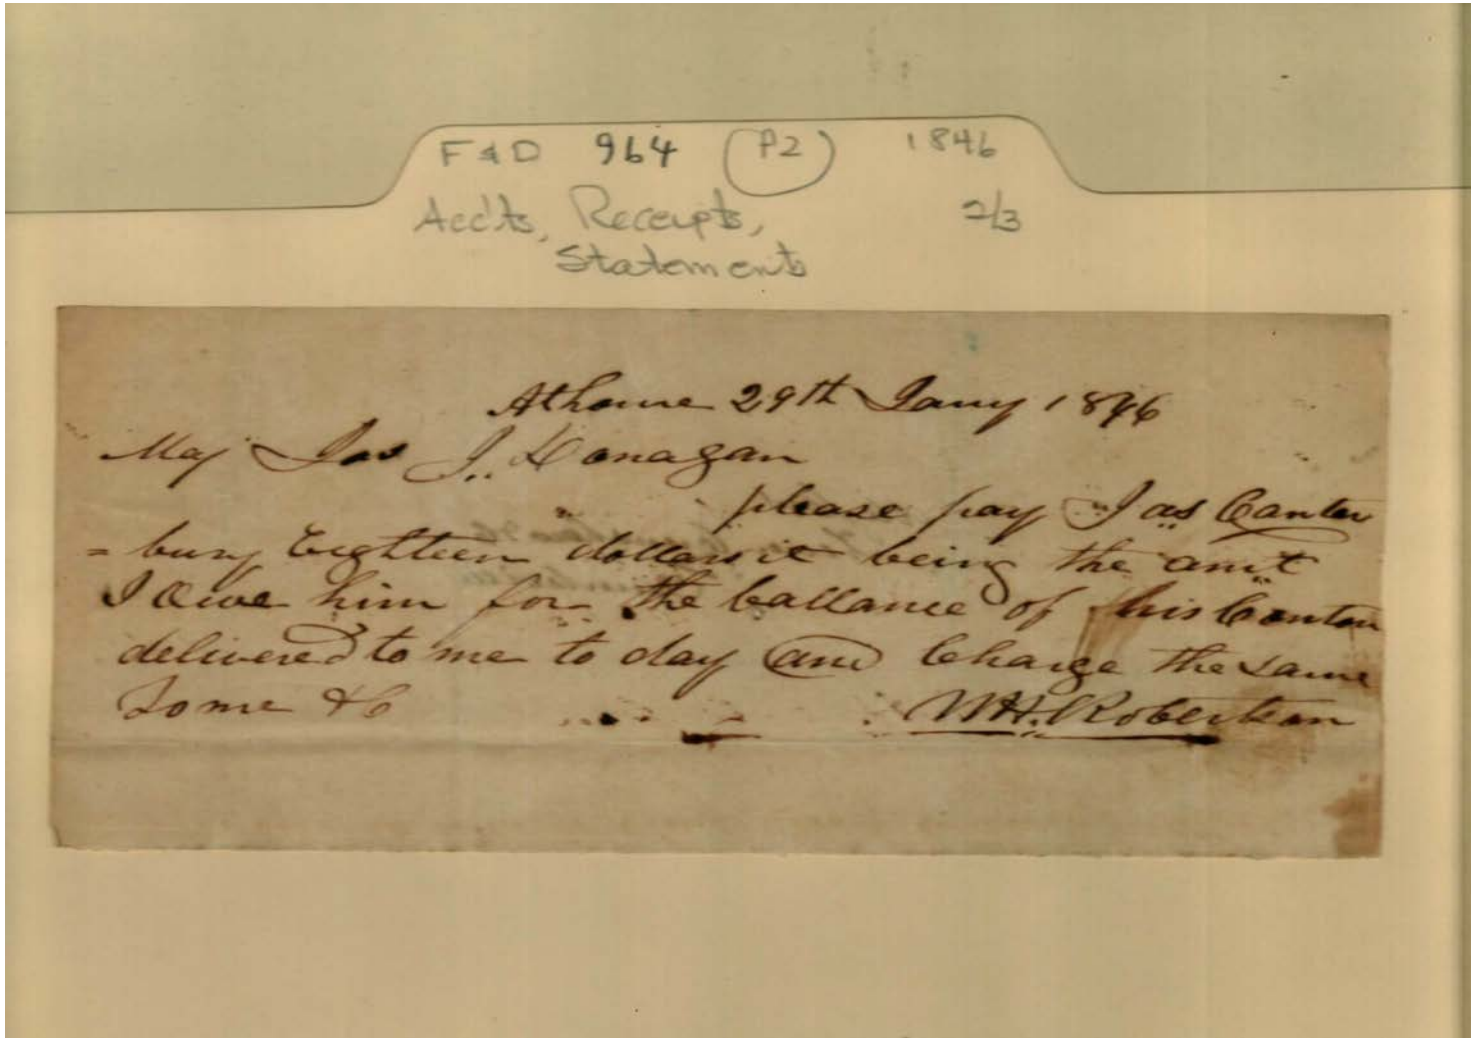 F & D 964 (P2) 1846
Acc'ts, Receipts, 2/3
Statements
At home 29th Jany 1846
Maj Jas J. Donagan
please pay Jas Canter
= bury Eighteen dollars it being the amt
I owe him for the ballance of his Cotton
delivered to me to day and Charge the same
To me &c
W H. Robertson